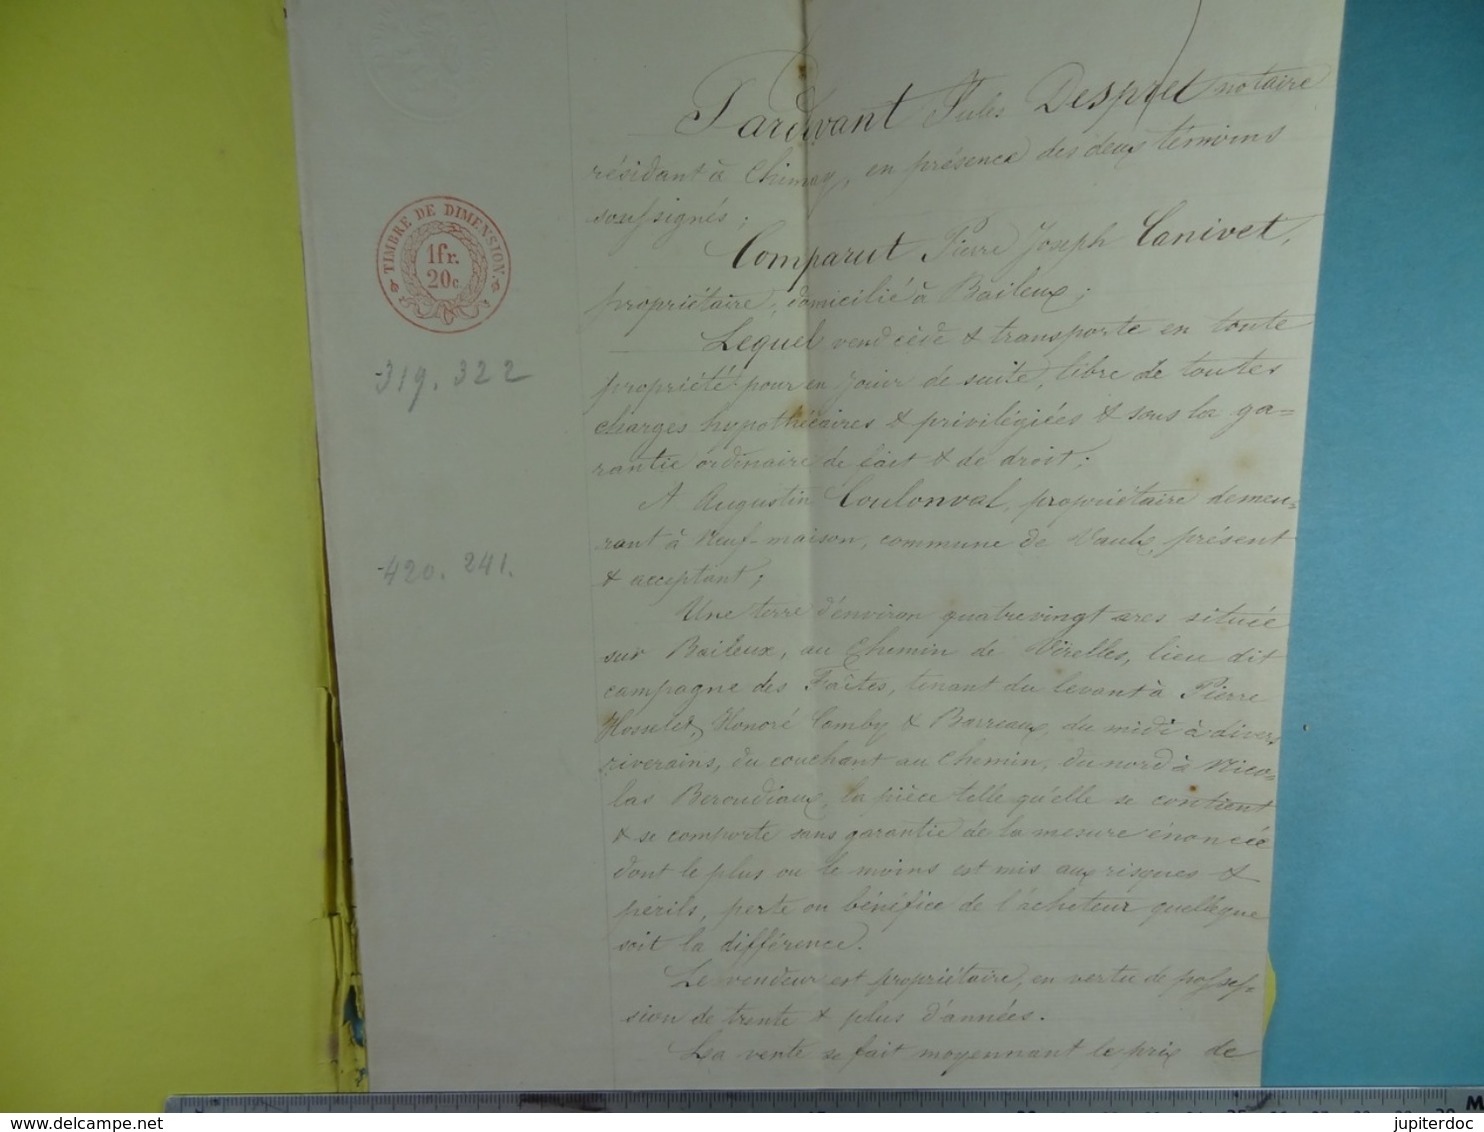 Pardevant Jules Despret notaire
résidant à Chimay, en présence des deux témoins
soussignés;
Comparut Pierre Joseph Canivet,
propriétaire, domicilié à Baileux;
Lequel vend cède & transporte en toute
propriété pour en jouir de suite, libre de toutes
charges hypothécaires & privilégiées & sous la ga=
rantie ordinaire de fait & de droit;
A Augustin Coulonval, propriétaire demeu=
rant à Neuf-maison, commune de Vaulx, présent
& acceptant;
Une terre d'environ quatrevingt ares située
sur Baileux, au Chemin de Virelles, lieu dit
campagne des Faîtes, tenant du levant à Pierre
Hosselet, Honoré Camby & Barreaux, du midi à divers
riverains, du couchant au chemin, du nord à Nico=
las Beroudiaux, la pièce telle qu'elle se contient
& se comporte sans garantie de la mesure énoncée
dont le plus ou le moins est mis aux risques &
périls, perte ou bénéfice de l'acheteur quellèque
soit la différence.
Le vendeur est propriétaire, en vertu de posses=
sion de trente & plus d'années.
La vente se fait moyennant le prix de
TIMBRE DE DIMENSION.
1fr.
20c.
319. 322
420. 241.
MADE
www.delcampe.net
jupiterdoc